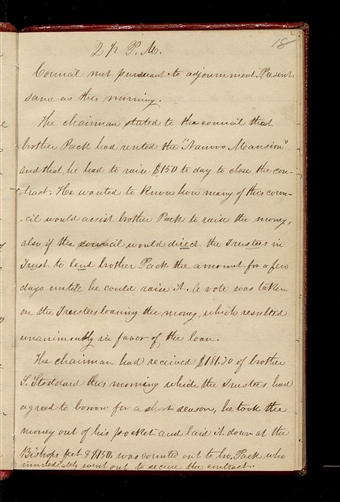 18
2 ½ P.M.
Council met pursuant to adjournment. Present
same as this morning.
The chairman stated to the council that
brother Pack had rented the "Nauvoo Mansion"
and that he had to raise $150 to day to close the con-
tract. He wanted to know how many of this coun-
cil would assist brother Pack to raise the money,
also if the council would direct the Trustees in
Trust to lend brother Pack the amount for a few
days until he could raise it. A vote was taken
on the Trustees loaning the money, which resulted
unanimously in favor of the loan.
The chairman had received of brother
S. Stoddard this morning which the Trustees had
agreed to borrow for a short season, he took the
money out of his pocket and laid it down at the
Bishops feet & $150. was counted out to bro. Pack who
immediately went out to secure the contract.